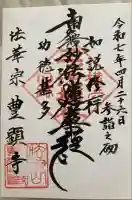 令和七年四月二十六日
参詣之砌
如説修行
南無妙法蓮華経
功徳甚多
法華宗 豊顕寺